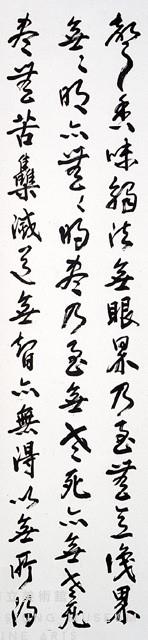 聲香味觸法無眼界乃至無意識界
無無明亦無無明盡乃至無老死亦無老死
盡無苦集滅道無智亦無得以無所得